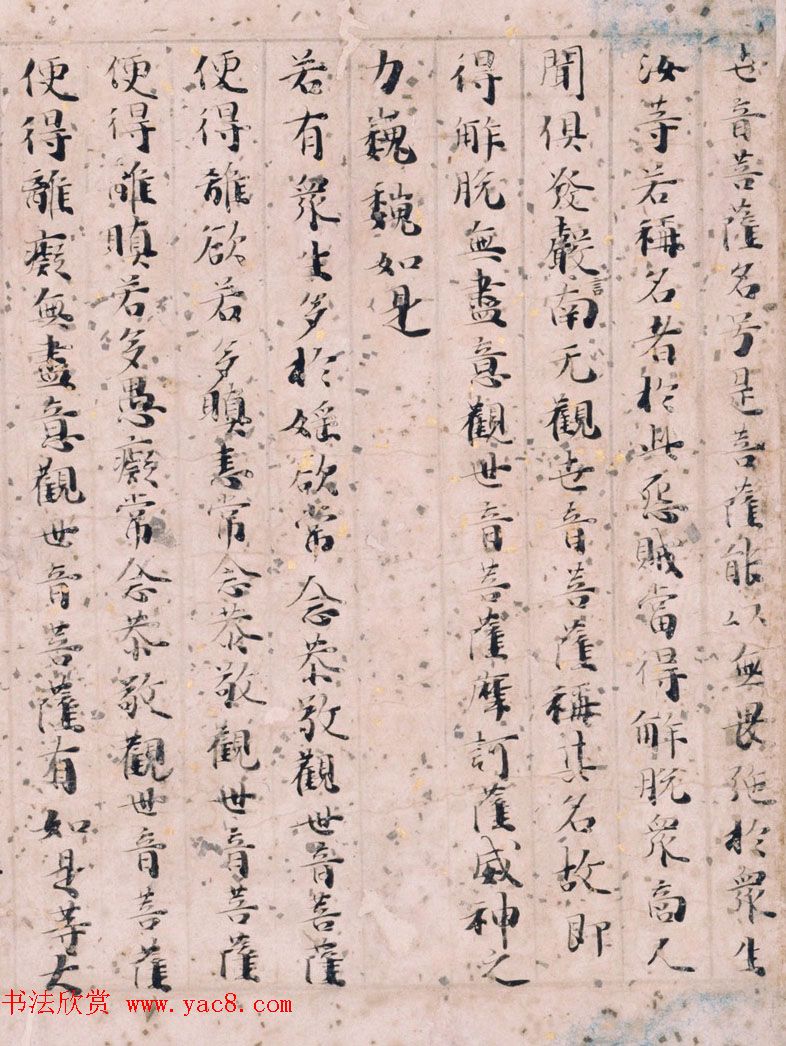 世音菩薩名号是菩薩能以無畏施於衆生
汝等若稱名者於此惡賊當得解脫衆商人
聞俱發聲言南无觀世音菩薩稱其名故即
得解脫無盡意觀世音菩薩摩訶薩威神之
力巍巍如是
若有衆生多於婬欲常念恭敬觀世音菩薩
便得離欲若多瞋恚常念恭敬觀世音菩薩
便得離瞋若多愚癡常念恭敬觀世音菩薩
便得離癡無盡意觀世音菩薩有如是等大
书法欣赏 www.yac8.com